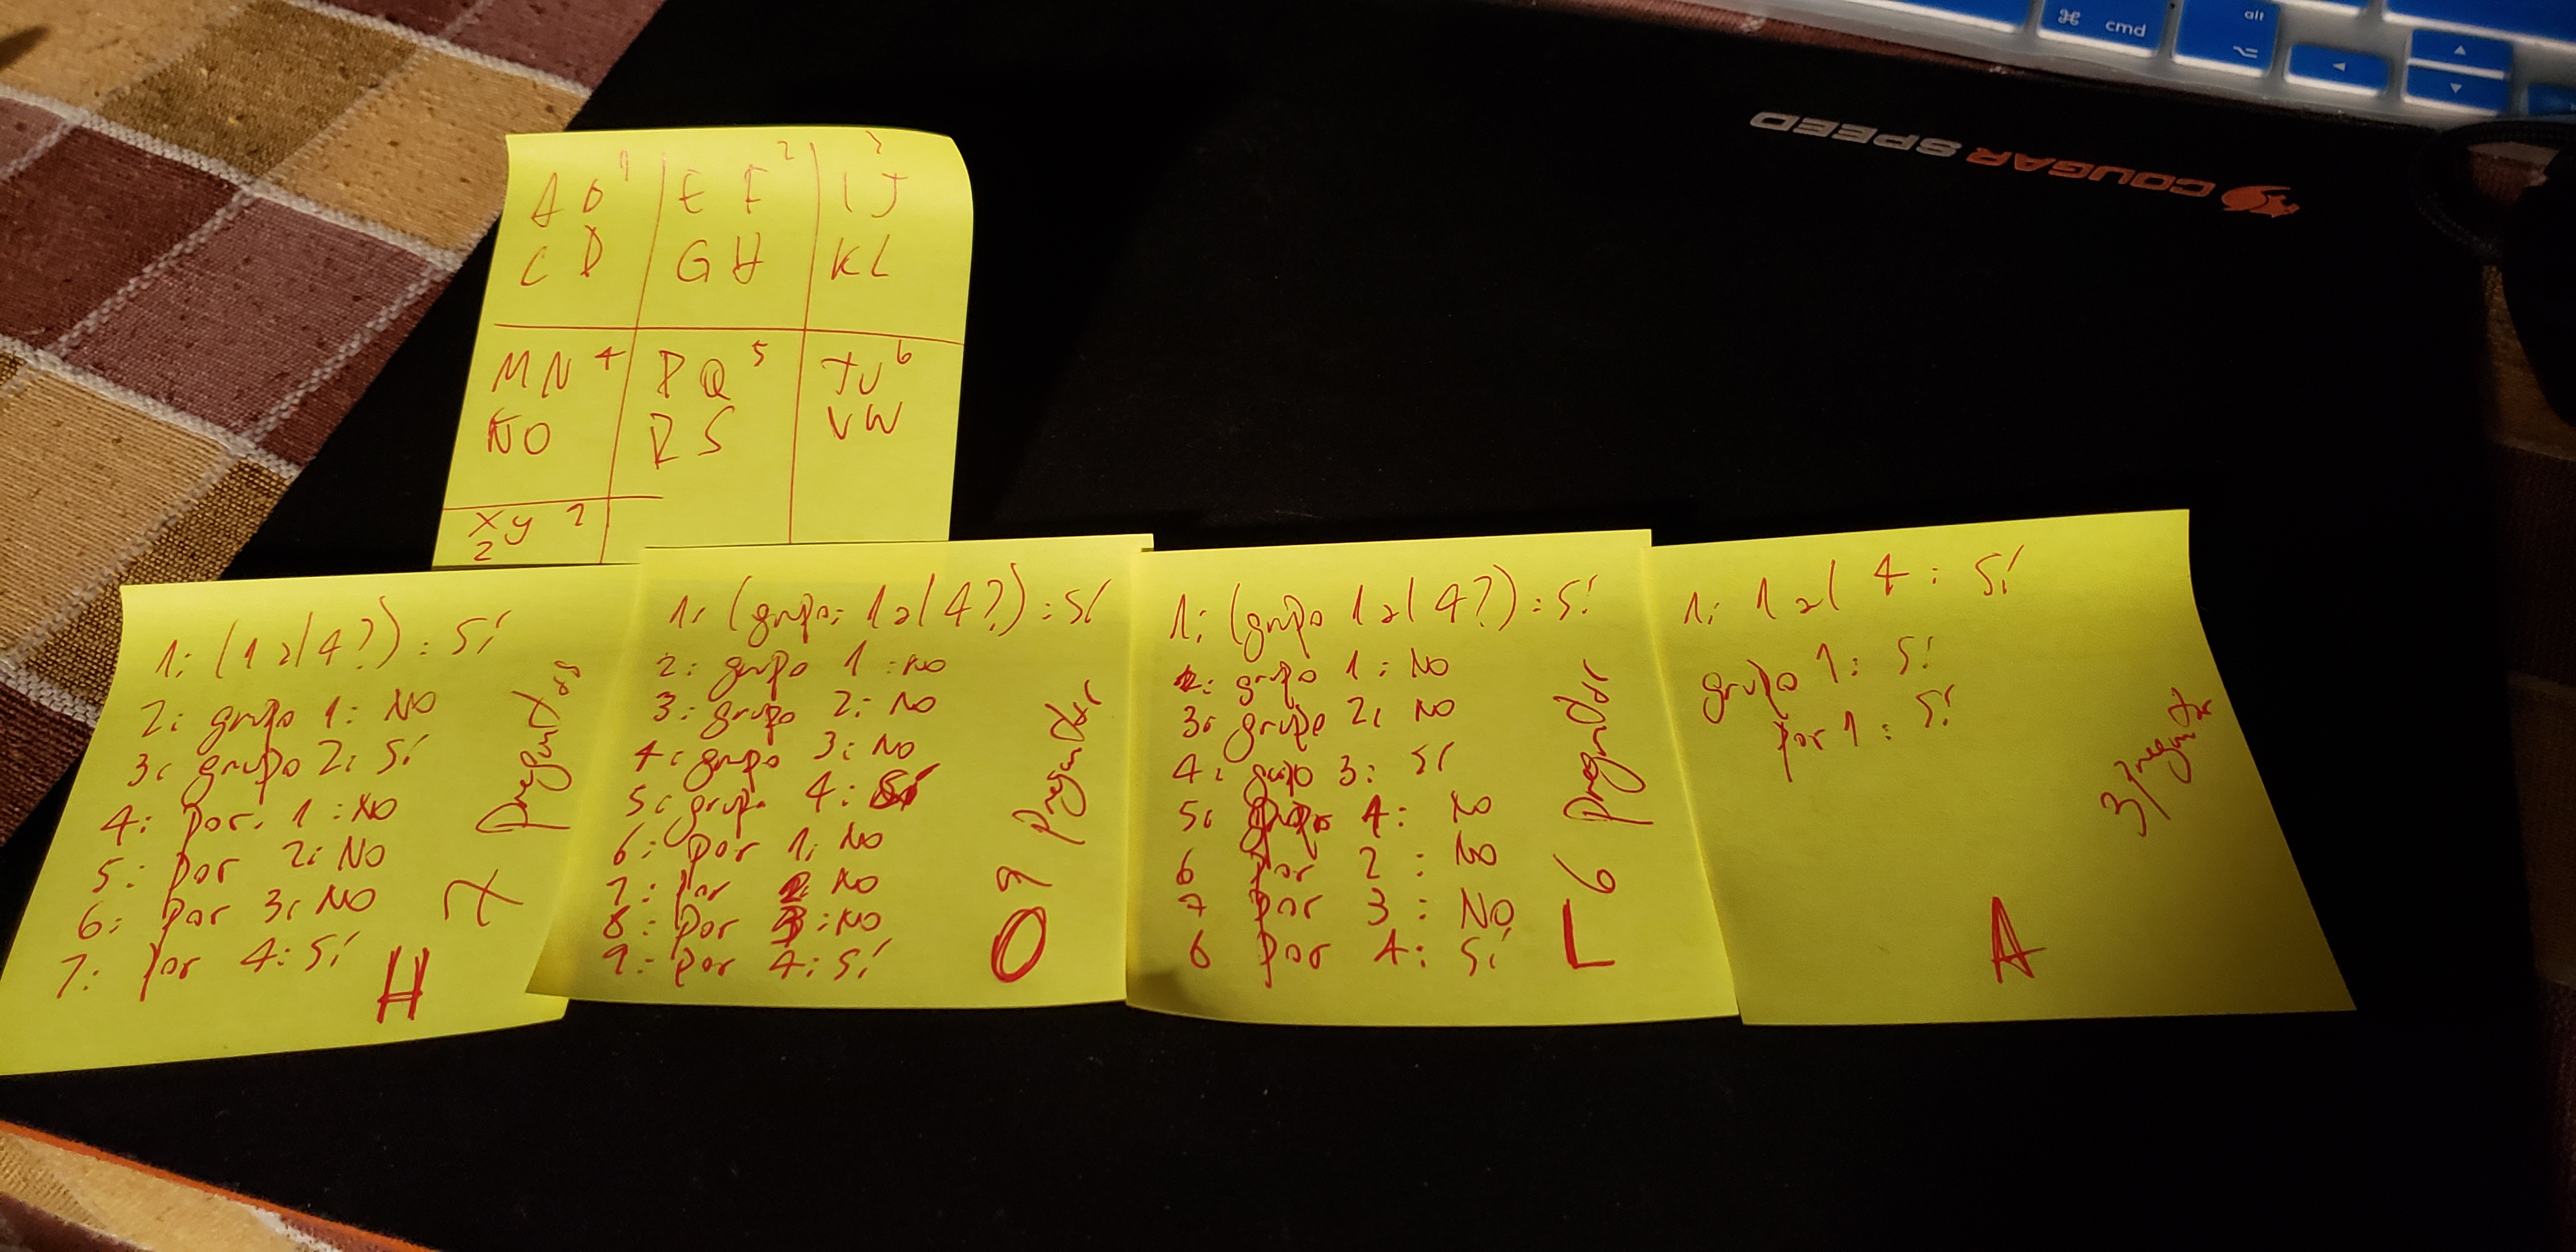 cmd
alt
COUGAR SPEED
A B 1 E F 2 I J 3
C D G H K L
M N 4 P Q 5 T U 6
Ñ O R S V W
X Y 7
Z
1: (1 al 4?): Sí
2: grupo 1: NO
3: grupo 2: Sí
4: por. 1: NO
5: por 2: NO
6: por 3: NO
7: por 4: Sí
7 preguntas
H
1: (grupo: 1 al 4?): Sí
2: grupo 1: NO
3: grupo 2: NO
4: grupo 3: NO
5: grupo 4: Sí
6: por 1: NO
7: por 2: NO
8: por 3: NO
9: por 4: Sí
9 preguntas
O
1: (grupo 1 al 4?): Sí
2: grupo 1: NO
3: grupo 2: NO
4: grupo 3: Sí
5: 1: NO
6 por 2: NO
7 por 3: NO
6 por 4: Sí
6 preguntas
L
1: 1 al 4: Sí
grupo 1: Sí
por 1: Sí
3 preguntas
A